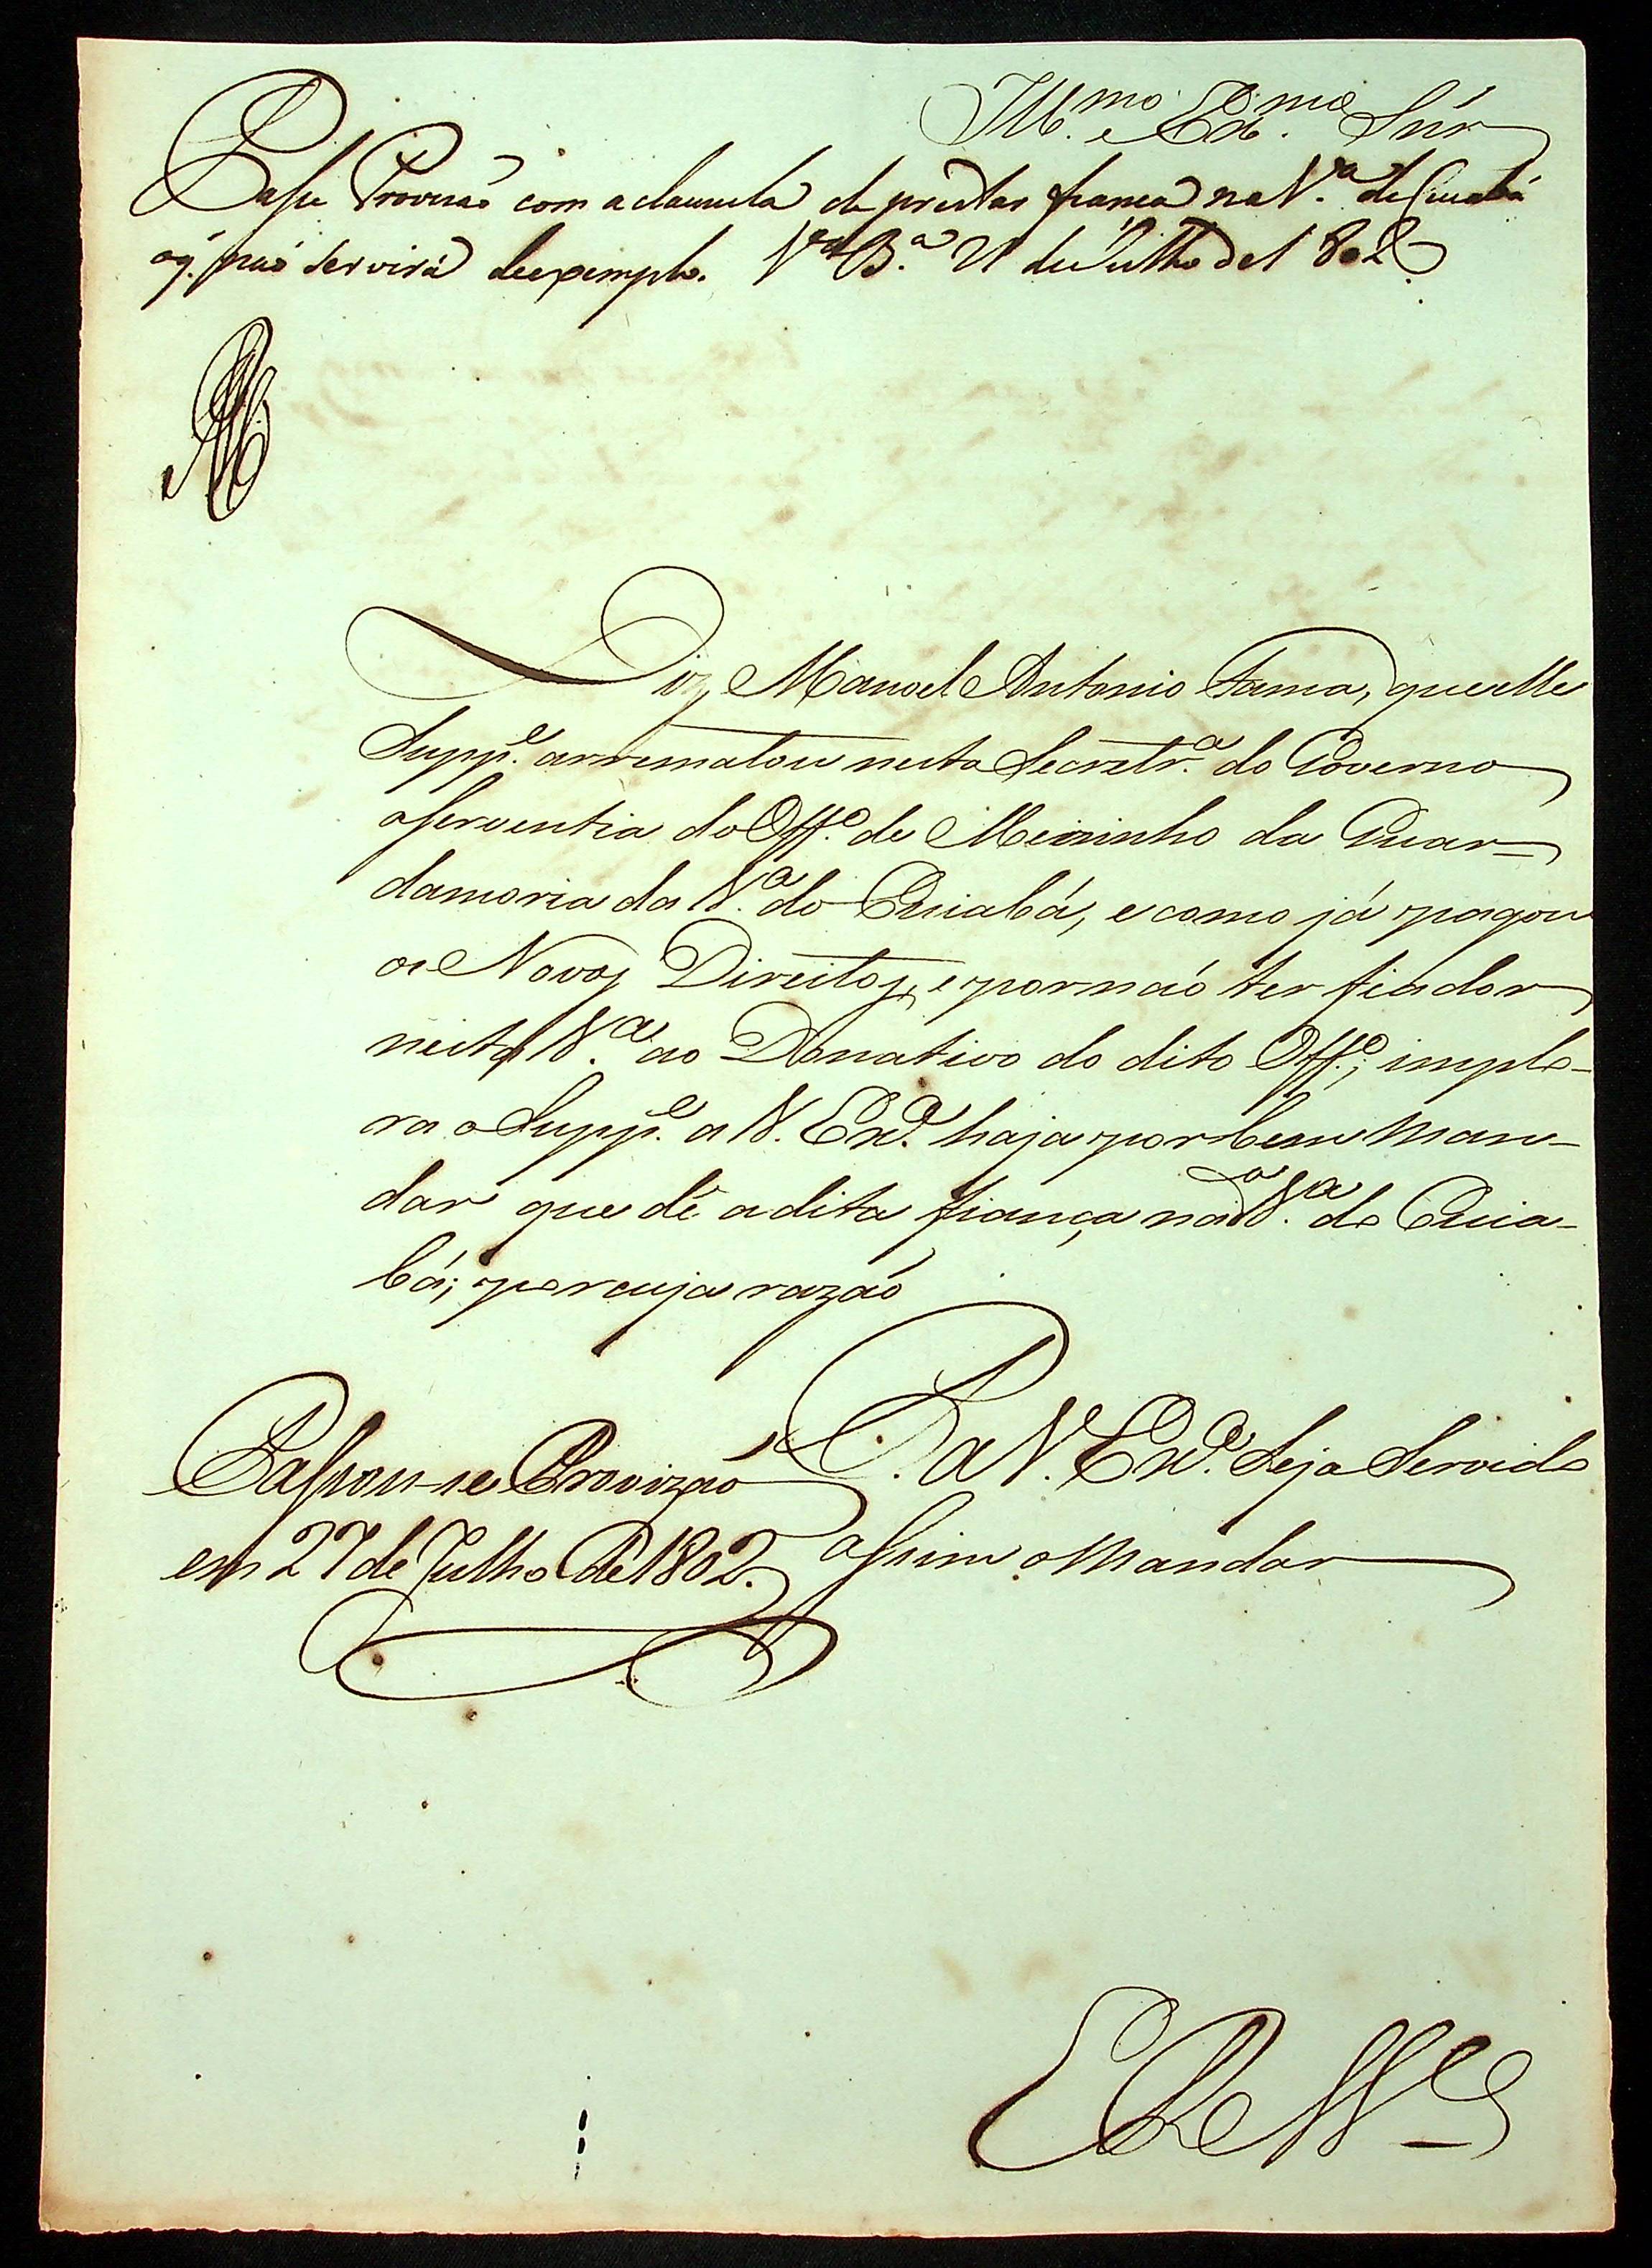 Ill.mo e Ex.mo Snr
Passe Provizão com a clauzula de prestar fiança na V.a de Cuiabá
o q. não servirá de exemplo. V.a B.a 21 de Julho de 1802
Diz Manoel Antonio Fama, que elle
Supp.e arrematou nesta Secretr.a do Governo
a serventia do Off.o de Meirinho da Guar-
damoria da V.a do Cuiabá, e como já pagou
os Novos Direitos, e por não ter fiador
nesta V.a ao Donativo do dito Off.o, implo-
ra o Supp.e a V. Ex.a haja por bem man-
dar que dê a dita fiança na V.a do Cuia-
bá; por cuja razão
P. a V. Ex.a Seja Servido
assim o mandar
Passou-se Provizão
em 27 de Julho de 1802.
E R M.ce